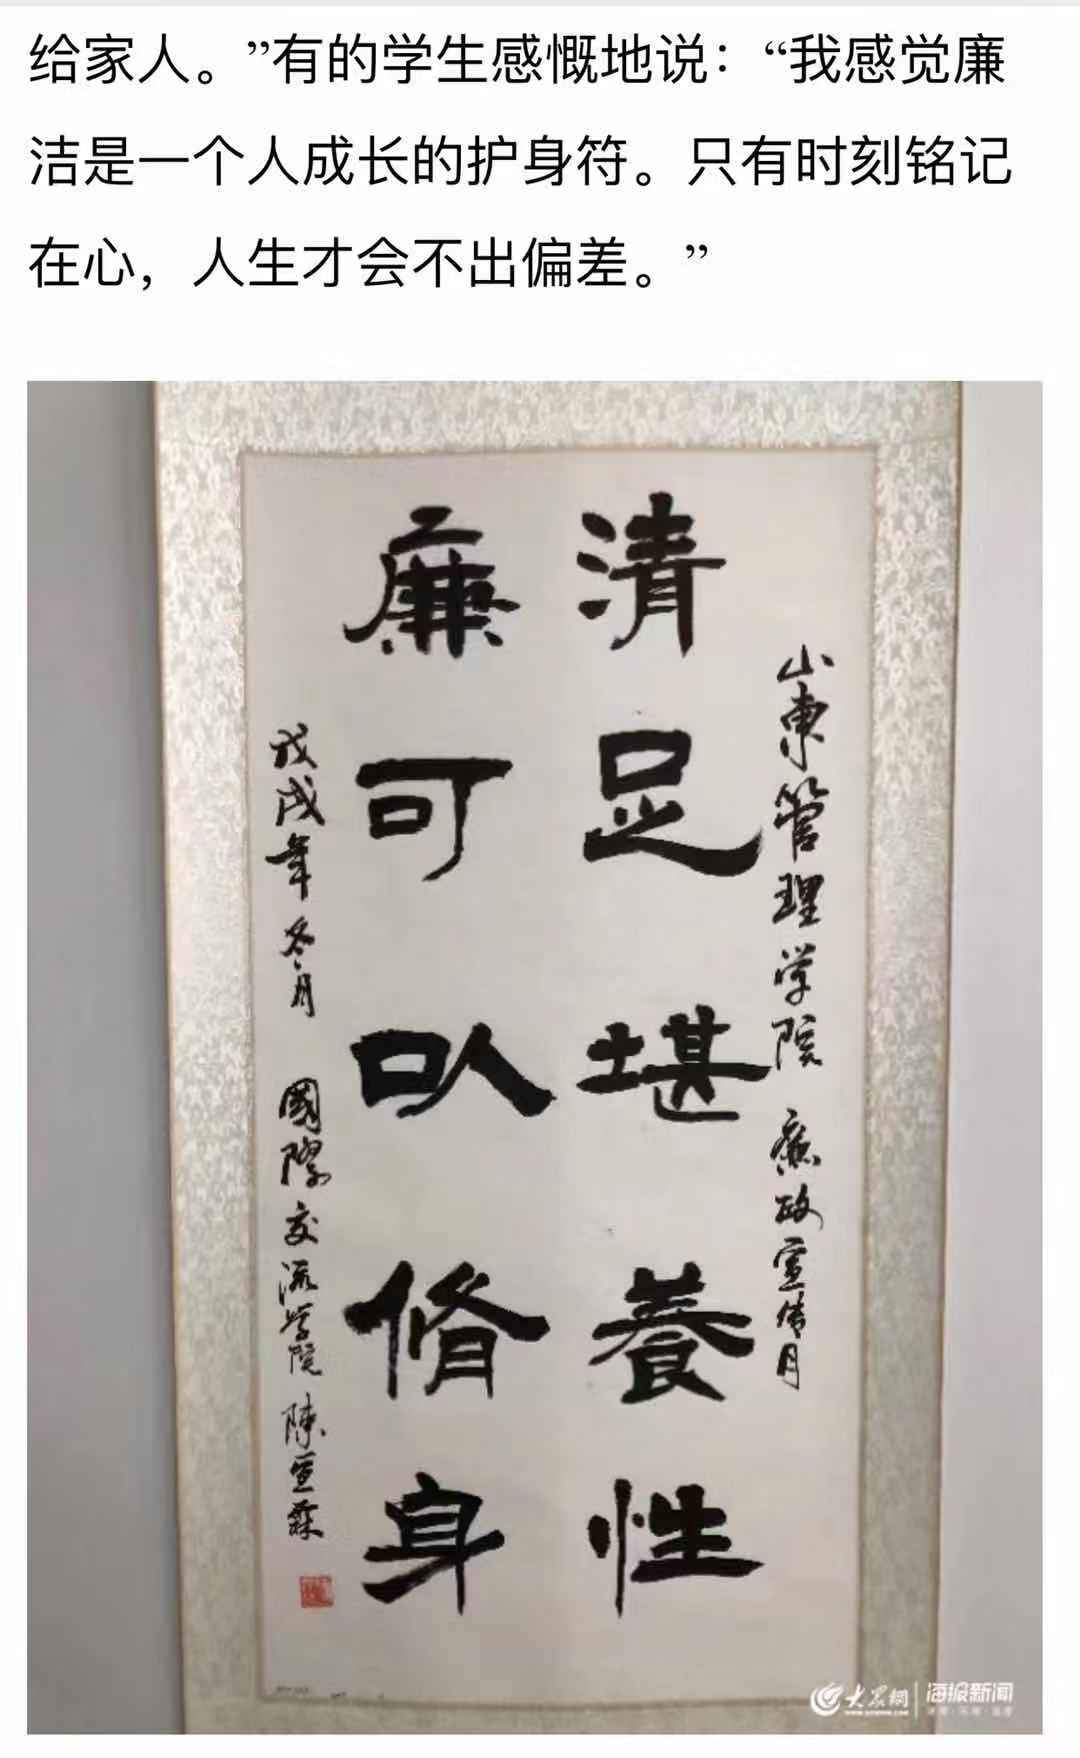 给家人。”有的学生感慨地说：“我感觉廉
洁是一个人成长的护身符。只有时刻铭记
在心，人生才会不出偏差。”
山東管理学院 廉政宣传月
清足堪養性
廉可以脩身
戊戌年冬月 國際交流学院 陳宣霖
大眾網
海报新闻